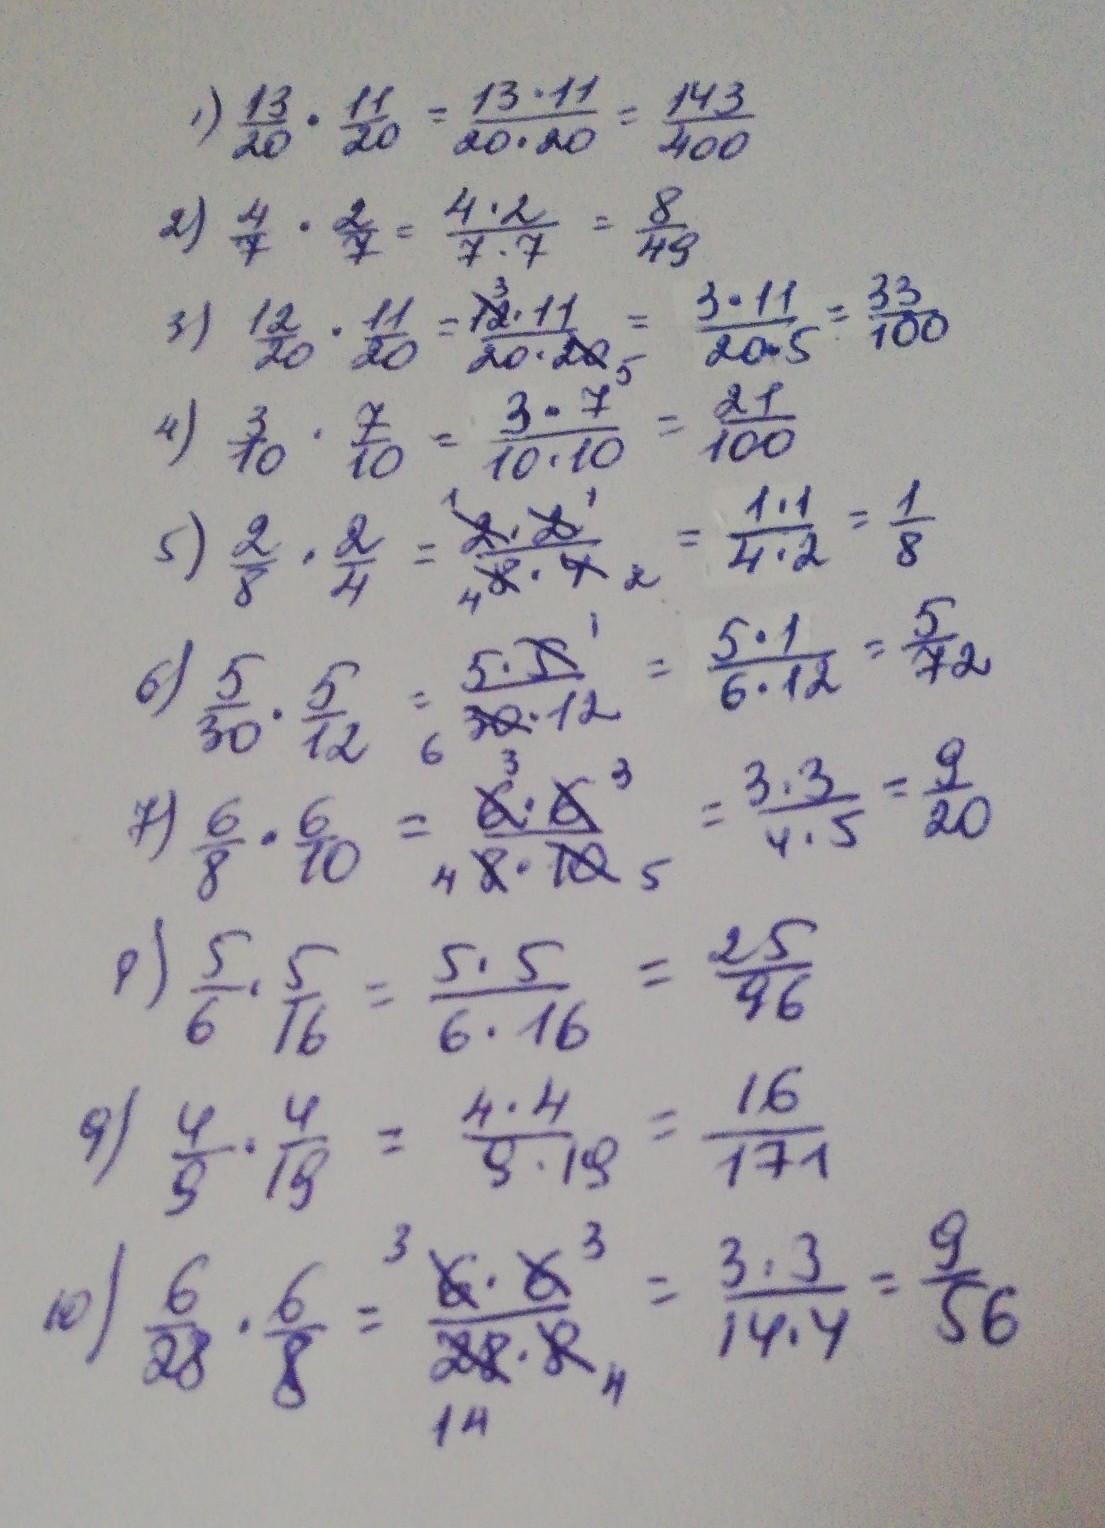 1) 13/20 · 11/20 = 13·11/20·20 = 143/400
2) 4/7 · 2/7 = 4·2/7·7 = 8/49
3) 12/20 · 11/20 = 12 3·11/20·20 5 = 3·11/20·5 = 33/100
4) 3/10 · 7/10 = 3·7/10·10 = 21/100
5) 2/8 · 2/4 = 1 2·2 1/4 8·4 2 = 1·1/4·2 = 1/8
6) 5/30 · 5/12 = 5·5 1/6 30·12 = 5·1/6·12 = 5/72
7) 6/8 · 6/10 = 3 6·6 3/4 8·10 5 = 3·3/4·5 = 9/20
8) 5/6 · 5/16 = 5·5/6·16 = 25/96
9) 4/9 · 4/19 = 4·4/9·19 = 16/171
10) 6/28 · 6/8 = 3 6·6 3/28·8 4 14 = 3·3/14·4 = 9/56